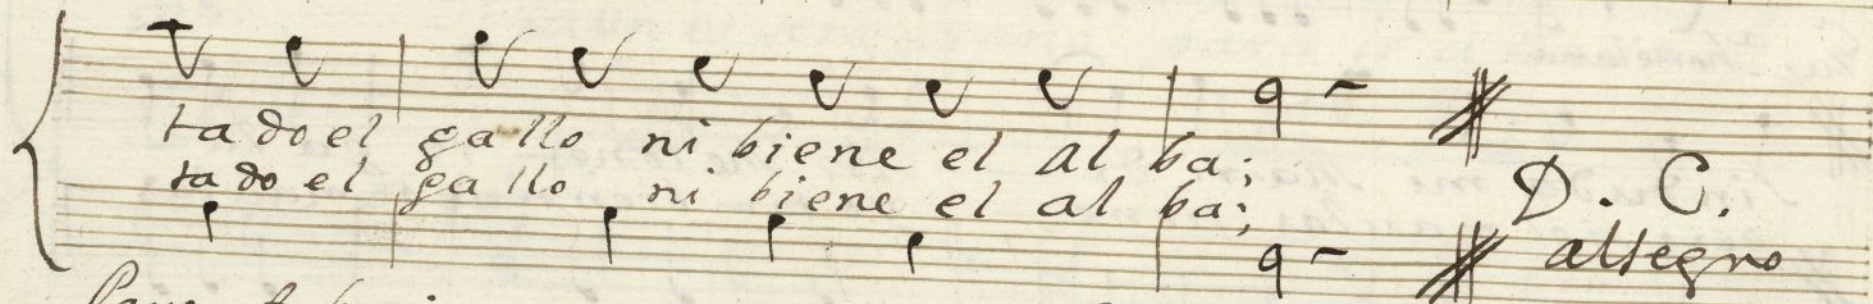 ta do el gallo ni biene el al ba;
ta do el gallo ni biene el al ba;
D. C.
alsegno